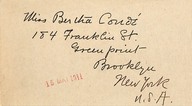 Miss Bertha Condé
184 Franklin St.
Greenpoint
Brooklyn
New York
U.S.A.
1911